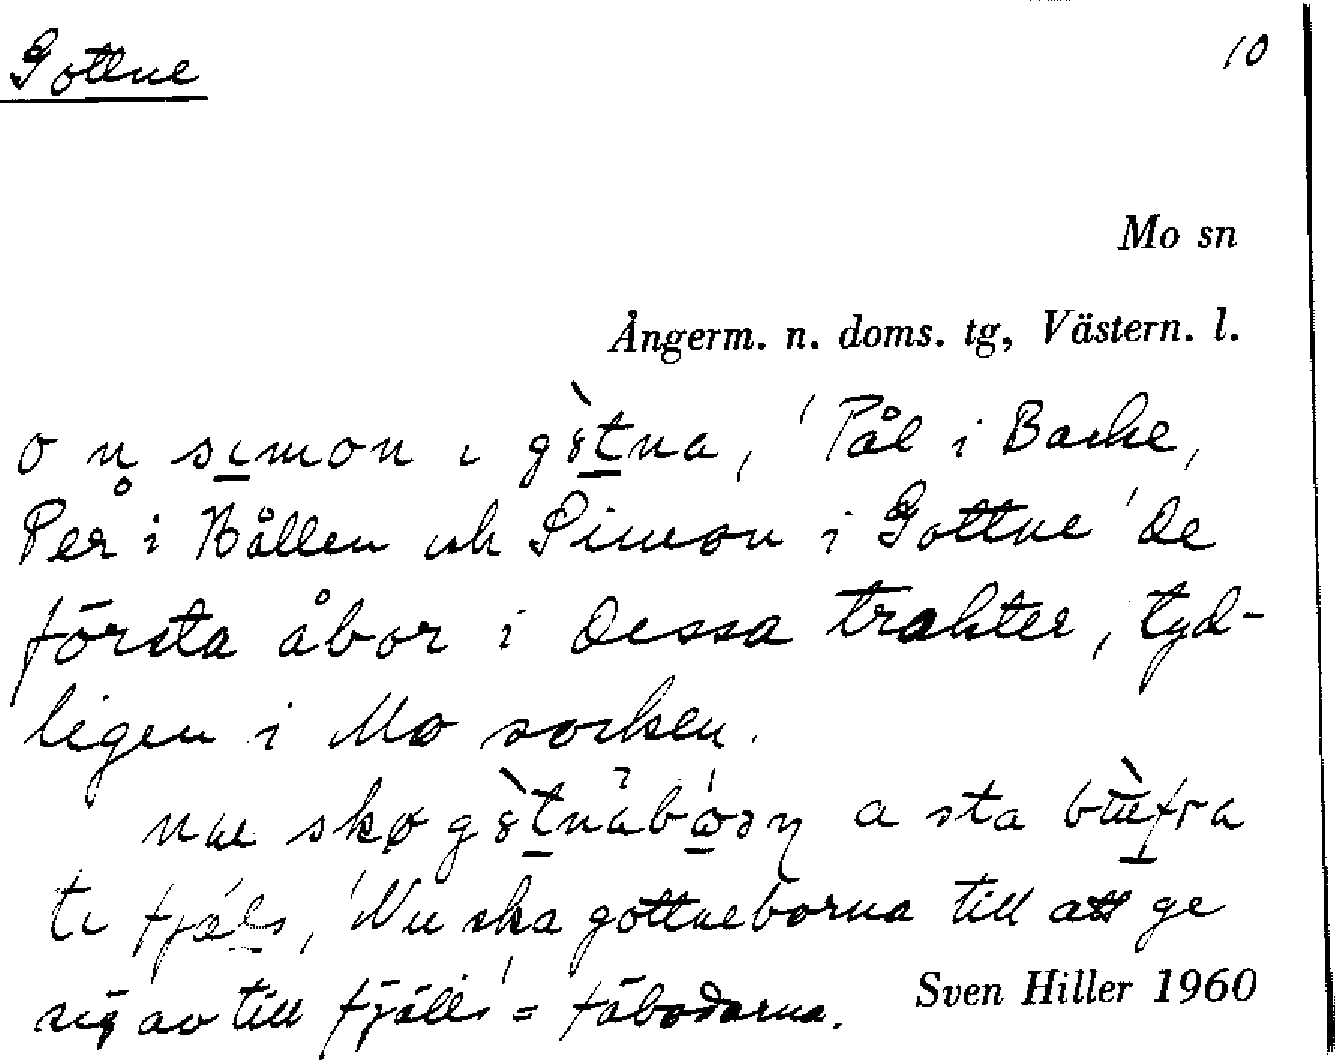 Gottne
10
Mo sn
Ångerm. n. doms. tg, Västern. l.
o n̥ sımon ı gȣ̀tna, 'Pål i Backe,
Per i Bållen och Simon i Gottne' de
första åbor i dessa trakter, tyd-
ligen i Mo socken.
nu skø a sta
tı fjäls, 'Nu ska gottneborna till att ge
sig av till fjälls' = fäbodarna.
Sven Hiller 1960